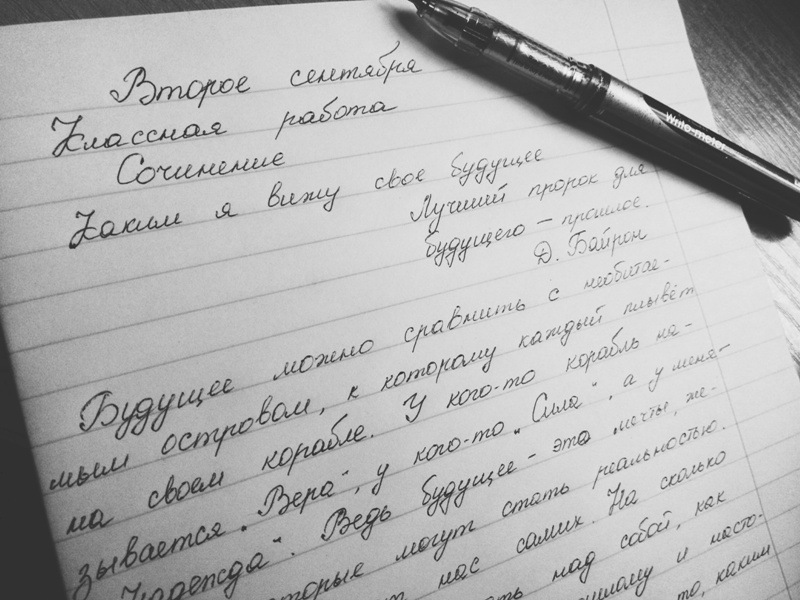 Второе сентября
Классная работа
Сочинение
Каким я вижу свое будущее
Лучший пророк для
будущего — прошлое.
Д. Байрон
Будущее можно сравнить с необитае-
мым островом, к которому каждый плывёт
на своем корабле. У кого-то корабль на-
зывается „Вера“, у кого-то „Сила“, а у меня-
„Надежда“. Ведь будущее - это мечты, же-
которые могут стать реальностью.
нас самих. На сколько
над собой, как
и насто-
то, каким
Write-meter